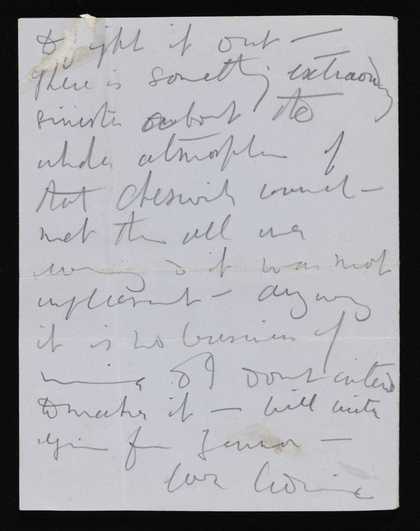 to fight it out —
There is something extraordinary
sinister about the
whole atmosphere of
that Chiswick council —
met them all one
evening & it was most
unpleasant — anyway
it is no business of
mine, & I don't intend
to make it — Will write
again from
love